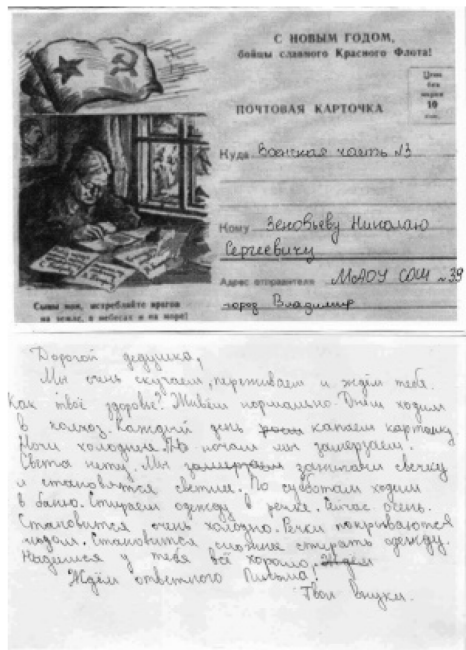 С НОВЫМ ГОДОМ,
бойцы славного Красного Флота!
Цена
без
марки
10
коп.
ПОЧТОВАЯ КАРТОЧКА
Куда воинская часть №3
Кому Зеновьеву Николаю
Сергеевичу
Адрес отправителя МАОУ СОШ №39
город Владимир
Сыны мои, истребляйте врагов
на земле, в небесах и на море!
Дорогой дедушка,
Мы очень скучаем, переживаем и ждём тебя.
Как твоё здоровье? Живём нормально. Днём ходим
в колхоз. Каждый день копаем картошку.
Ночи холодные. По ночам мы замерзаем.
Света нету. Мы замерзаем зажигаем свечку
и становится светлее. По субботам ходим
в баню. Стираем одежду в речке. Сейчас осень.
Становится очень холодно. Речки покрываются
льдом. Становится сложнее стирать одежду.
Надеемся у тебя всё хорошо. Ждём
Ждём ответного письма!
Твои внуки.